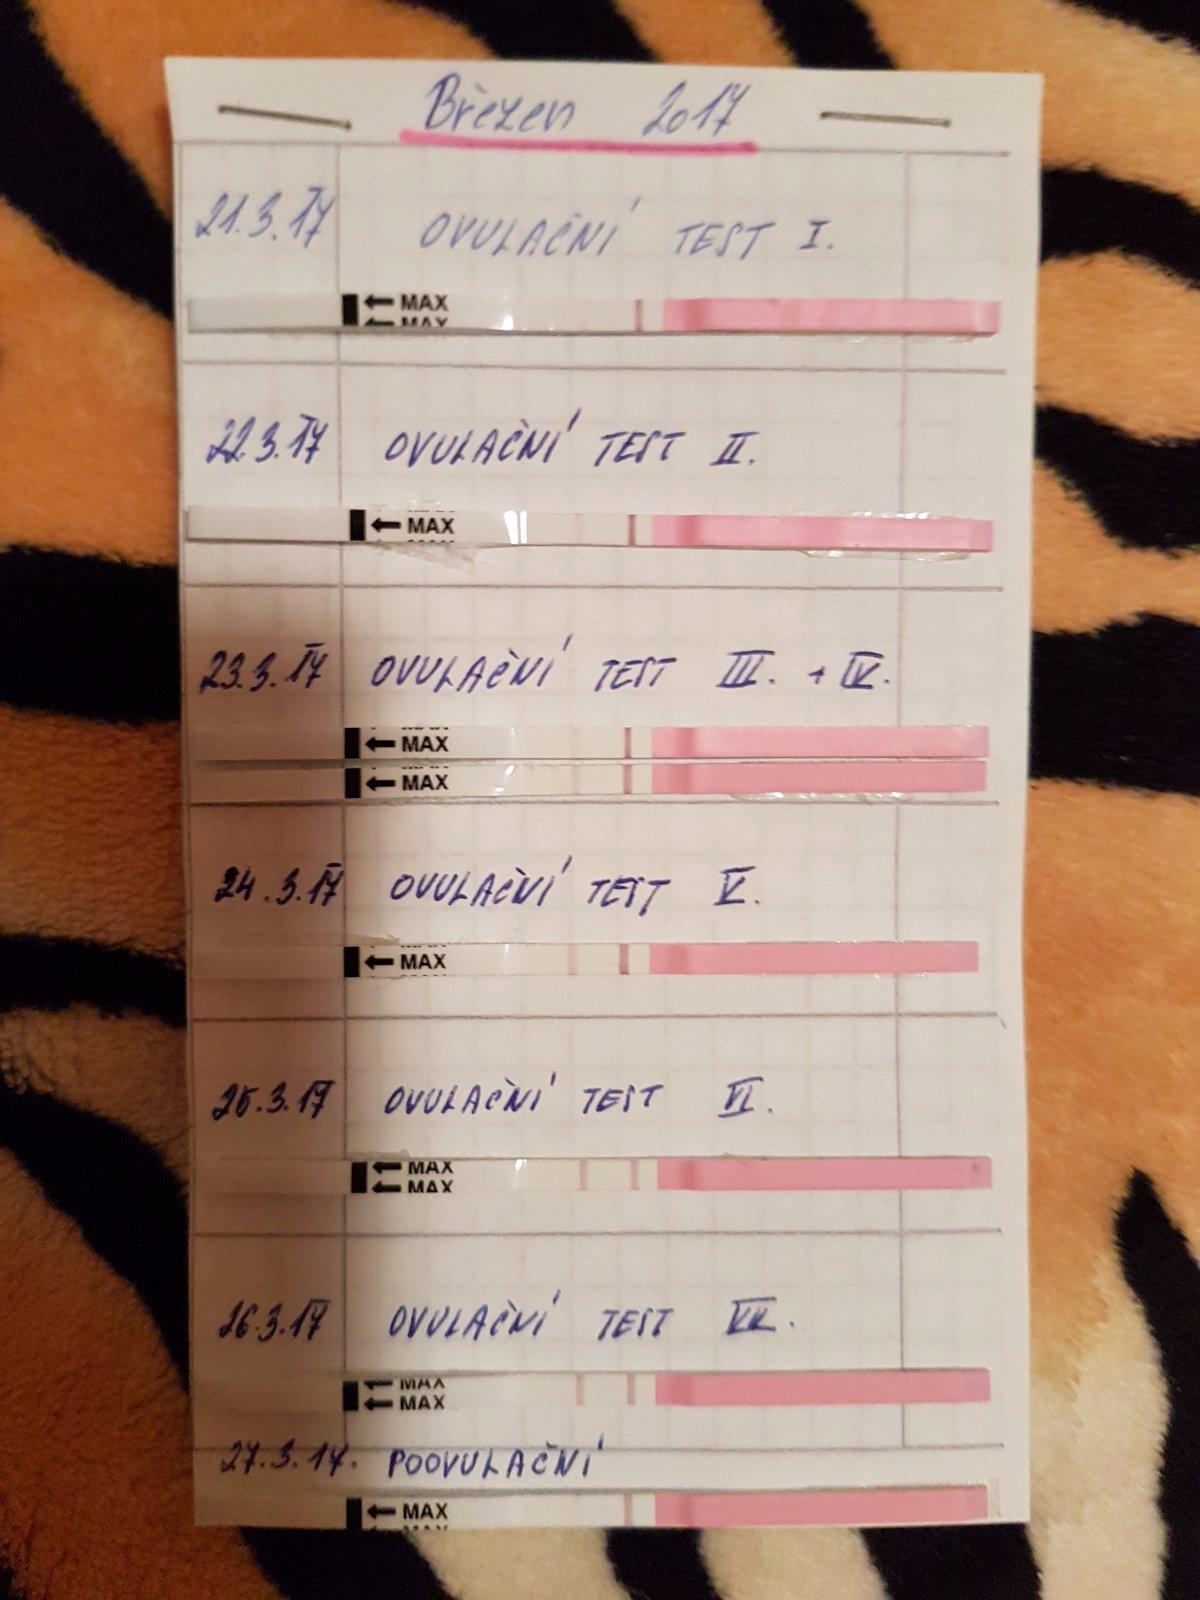 Březen 2017
21.3.17 OVULAČNÍ TEST I.
MAX
MAX
22.3.17 OVULAČNÍ TEST II.
MAX
23.3.17 OVULAČNÍ TEST III. + IV.
MAX
MAX
24.3.17 OVULAČNÍ TEST V.
MAX
25.3.17 OVULAČNÍ TEST VI.
MAX
MAX
26.3.17 OVULAČNÍ TEST VII.
MAX
MAX
27.3.17. POOVULAČNÍ
MAX